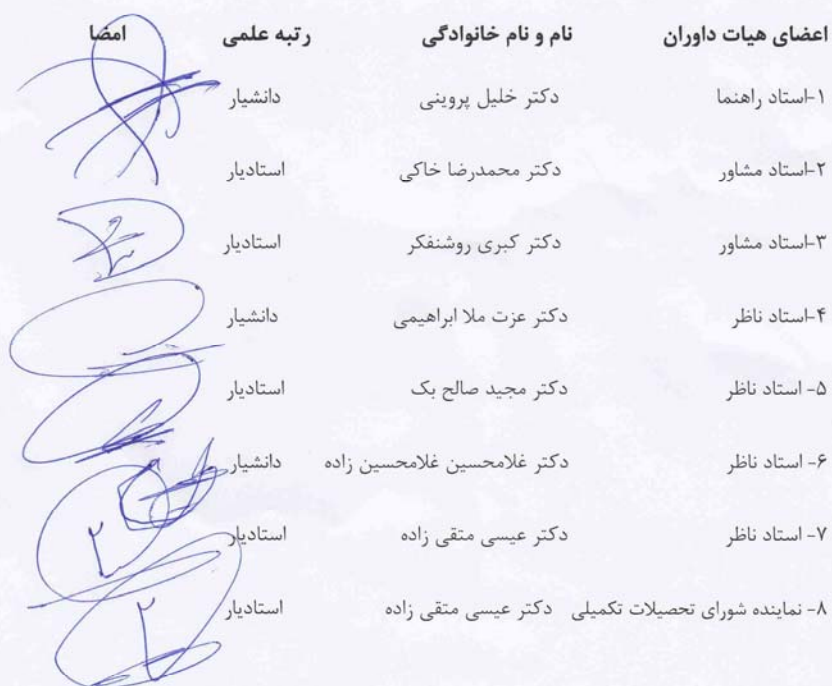 اعضای هیات داوران نام و نام خانوادگی رتبه علمی امضا
۱-استاد راهنما دکتر خلیل پروینی دانشیار
۲-استاد مشاور دکتر محمدرضا خاکی استادیار
۳-استاد مشاور دکتر کبری روشنفکر استادیار
۴-استاد ناظر دکتر عزت ملا ابراهیمی دانشیار
۵- استاد ناظر دکتر مجید صالح بک استادیار
۶- استاد ناظر دکتر غلامحسین غلامحسین زاده دانشیار
۷- استاد ناظر دکتر عیسی متقی زاده استادیار
۸- نماینده شورای تحصیلات تکمیلی دکتر عیسی متقی زاده استادیار